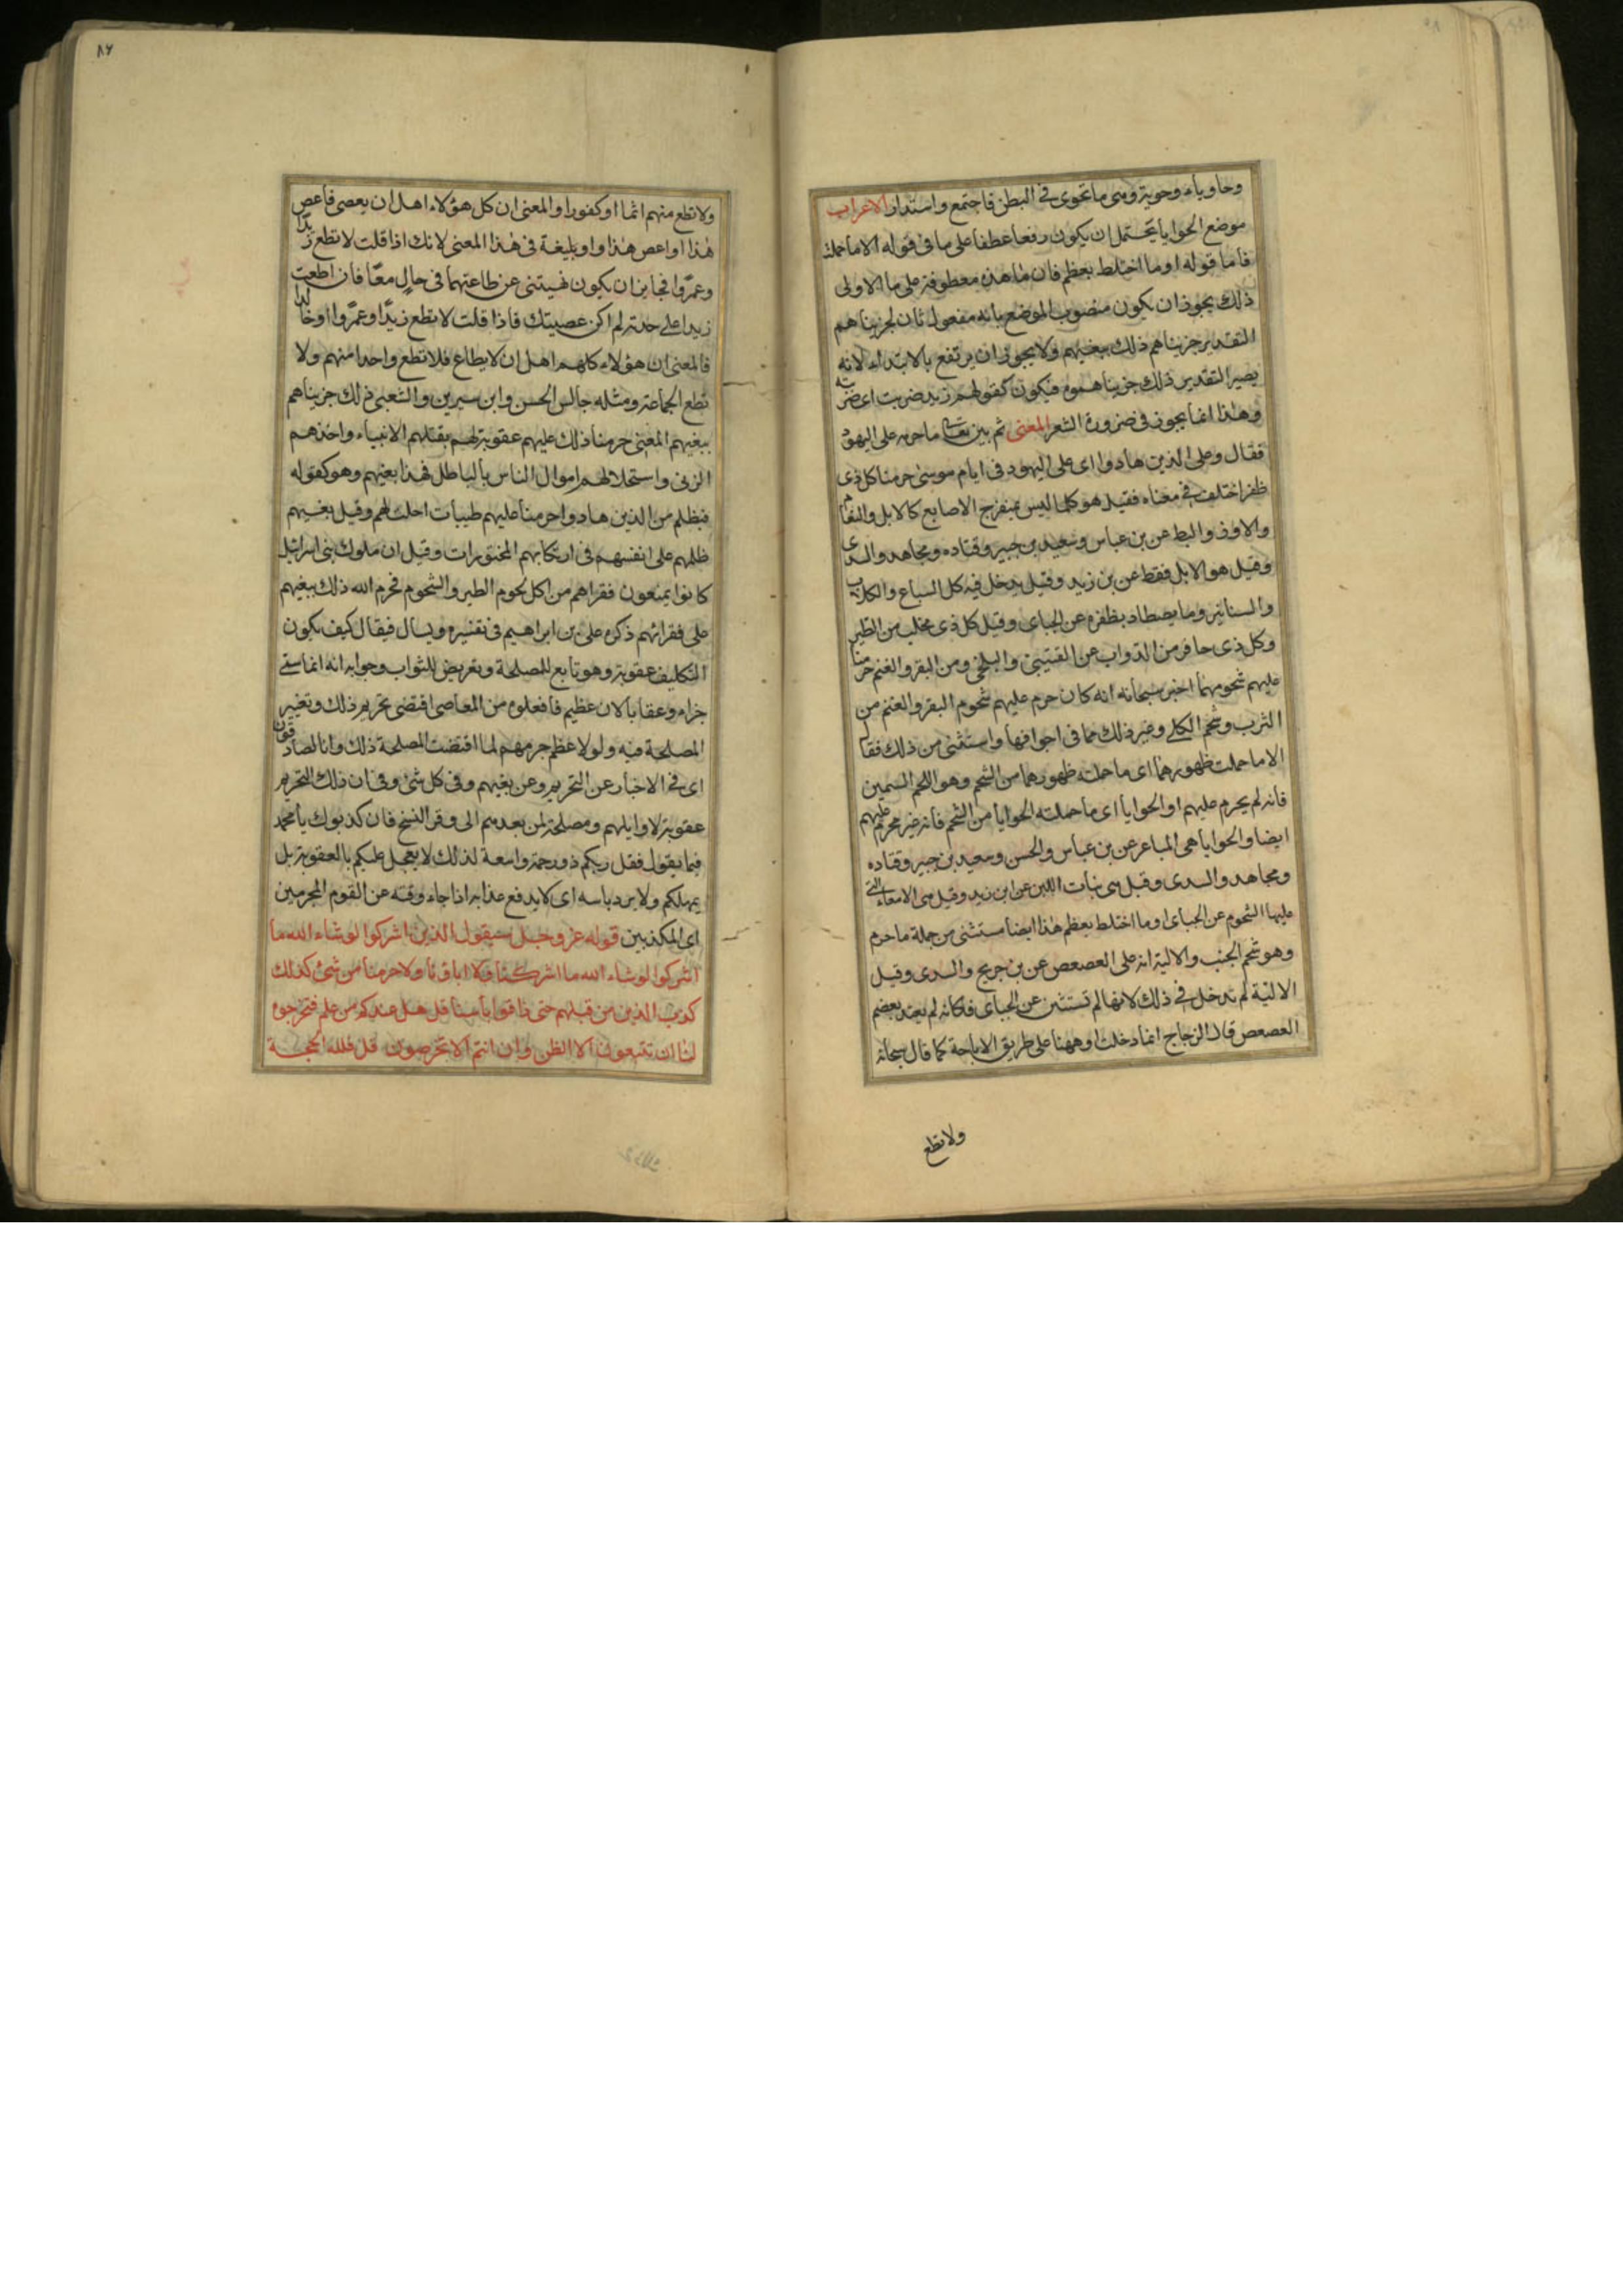 وحاوياء وحوية وهى ما تحوى فى البطن فاجتمع واستدار الاعراب
موضع الحوايا يحتمل ان يكون رفعا عطفا على ما فى قوله الا ما حملت
فاما قوله او ما اختلط بعظم فان ما هذه معطوفة على ما الاولى
ذلك يجوز ان يكون منصوب الموضع بانه مفعول ثان لجزيناهم
التقدير جزيناهم ذلك ببغيهم ولا يجوز ان يرتفع بالابتداء لانه
يصير التقدير ذلك جزيناهموه فيكون كقولهم زيد ضربت اى ضربته
وهذا انما يجوز فى ضرورة الشعر المعنى ثم بين تعالى ما حرمه على اليهود
فقال وعلى الذين هادوا اى على اليهود فى ايام موسى حرمنا كل ذى
ظفر اختلف فى معناه فقيل هو كلما ليس بمنفرج الاصابع كالابل والنعام
والاوز والبط عن بن عباس وسعيد بن جبير وقتاده ومجاهد والسدى
وقيل هو الابل فقط عن بن زيد وقيل يدخل فيه كل السباع والكلاب
والسنانير وما يصطاد بظفره عن الجباى وقيل كل ذى مخلب من الطير
وكل ذى حافر من الدواب عن القتيبى والبلخى ومن البقر والغنم حرمنا
عليهم شحومهما اخبر سبحانه انه كان حرم عليهم شحوم البقر والغنم من
الثرب وشحم الكلى وغير ذلك مما فى اجوافها واستثنى من ذلك فقال
الا ما حملت ظهورهما اى ما حملته ظهورهما من الشحم وهو اللحم السمين
فانه لم يحرم عليهم او الحوايا اى ما حملته الحوايا من الشحم فانه غير محرم عليهم
ايضا والحوايا هى المباعر عن بن عباس والحسن وسعيد بن جبير وقتاده
ومجاهد والسدى وقيل هى بنات اللبن عن ابن زيد وقيل هى الامعاء التى
عليها الشحوم عن الجباى او ما اختلط بعظم هذا ايضا مستثنى من جملة ما حرم
وهو شحم الجنب والالية انه على العصعص عن بن جريج والسدى وقيل
الالية لم تدخل فى ذلك لانها لم تستثنى عن الجباى فكانه لم يعتد بعضم
العصعص قال الزجاج انما دخلت او ههنا على طريق الاباحة كما قال سبحانه
ولا تطع
٨٦
ولا تطع منهم اثما او كفورا والمعنى ان كل هؤلاء اهل ان يعصى فاعص
هذا او اعص هذا واو بليغة فى هذا المعنى لانك اذا قلت لا تطع زيدا
وعمروا فجايز ان يكون نهيتنى عن طاعتهما فى حال معا فان اطعت
زيدا على حدته لم اكن عصيتك فاذا قلت لا تطع زيدا وعمروا او خالدا
فالمعنى ان هؤلاء كلهم اهل ان لا يطاع فلا تطع واحدا منهم ولا
تطع الجماعة ومثله جالس الحسن وابن سيرين والشعبى ذلك جزيناهم
ببغيهم المعنى حرمنا ذلك عليهم عقوبة لهم بقتلهم الانبياء واخذهم
الربى واستحلالهم اموال الناس بالباطل فهذا بغيهم وهو كقوله
فبظلم من الذين هادوا حرمنا عليهم طيبات احلت لهم وقيل بغيهم
ظلمهم على انفسهم فى ارتكابهم المحظورات وقيل ان ملوك بنى اسرائيل
كانوا يمنعون فقراهم من اكل لحوم الطير والشحوم فحرم الله ذلك ببغيهم
على فقرائهم ذكره على بن ابراهيم فى تفسيره ويسال فيقال كيف يكون
التكليف عقوبة وهو تابع للمصلحة وتعريض للثواب وجوابه انه انما سمى
جزاء وعقابا لان عظيم ما فعلوه من المعاصى اقتضى تحريم ذلك وتغير
المصلحة فيه ولولا عظم جرمهم لما اقتضت المصلحة ذلك وانا لصادقون
اى فى الاخبار عن التحريم وعن بغيهم وفى كل شئ وفى ان ذلك التحريم
عقوبة لاوايلهم ومصلحة لمن بعدهم الى وقت النسخ فان كذبوك يا محمد
فيما تقول فقل ربكم ذو رحمة واسعة لذلك لا يعجل عليكم بالعقوبة بل
يمهلكم ولا يرد باسه اى لا يدفع عذابه اذا جاء وقته عن القوم المجرمين
اى المكذبين قوله عز وجل سيقول الذين اشركوا لو شاء الله ما
اشركوا لو شاء الله ما اشركنا ولا اباؤنا ولا حرمنا من شئ كذلك
كذب الذين من قبلهم حتى ذاقوا بأسنا قل هل عندكم من علم فتخرجوه
لنا ان تتبعون الا الظن وان انتم الا تخرصون قل فلله الحجة